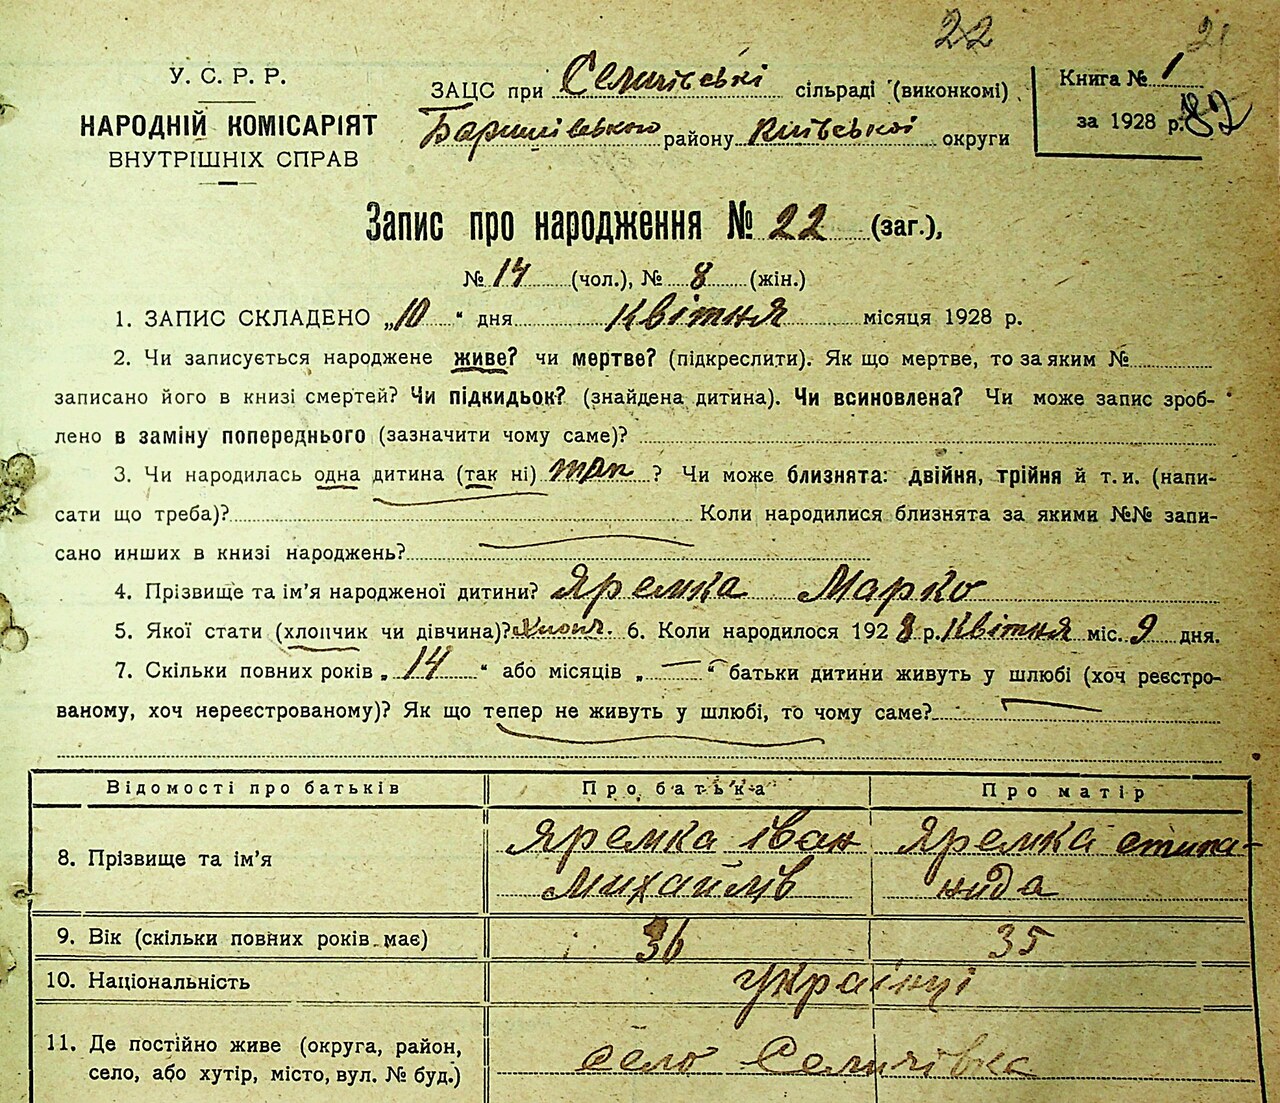 22 21
У. С. Р. Р.
НАРОДНІЙ КОМІСАРІЯТ
ВНУТРІШНІХ СПРАВ
ЗАЦС при Селичівські сільраді (виконкомі)
Баришівського району Київської округи
Книга № 1
за 1928 р. 82
Запис про народження № 22 (заг.),
№ 14 (чол.), № 8 (жін.)
1. ЗАПИС СКЛАДЕНО „10 “ дня Квітня місяця 1928 р.
2. Чи записується народжене живе? чи мертве? (підкреслити). Як що мертве, то за яким №
записано його в книзі смертей? Чи підкидьок? (знайдена дитина). Чи всиновлена? Чи може запис зроб-
лено в заміну попереднього (зазначити чому саме)?
3. Чи народилась одна дитина (так ні) так ? Чи може близнята: двійня, трійня й т. и. (напи-
сати що треба)? Коли народилися близнята за якими №№ запи-
сано инших в книзі народжень?
4. Прізвище та ім'я народженої дитини? Яремка Марко
5. Якої стати (хлопчик чи дівчина)? Хлопч. 6. Коли народилося 1928 р. Квітня міс. 9 дня.
7. Скільки повних років „ 14 “ або місяців „ — “ батьки дитини живуть у шлюбі (хоч реєстро-
ваному, хоч нереєстрованому)? Як що тепер не живуть у шлюбі, то чому саме?
Відомості про батьків Про батька Про матір
8. Прізвище та ім'я Яремка Іван Михайлів Яремка степа-нида
9. Вік (скільки повних років має) 36 35
10. Національність українці
11. Де постійно живе (округа, район,
село, або хутір, місто, вул. № буд.) село Селичівка